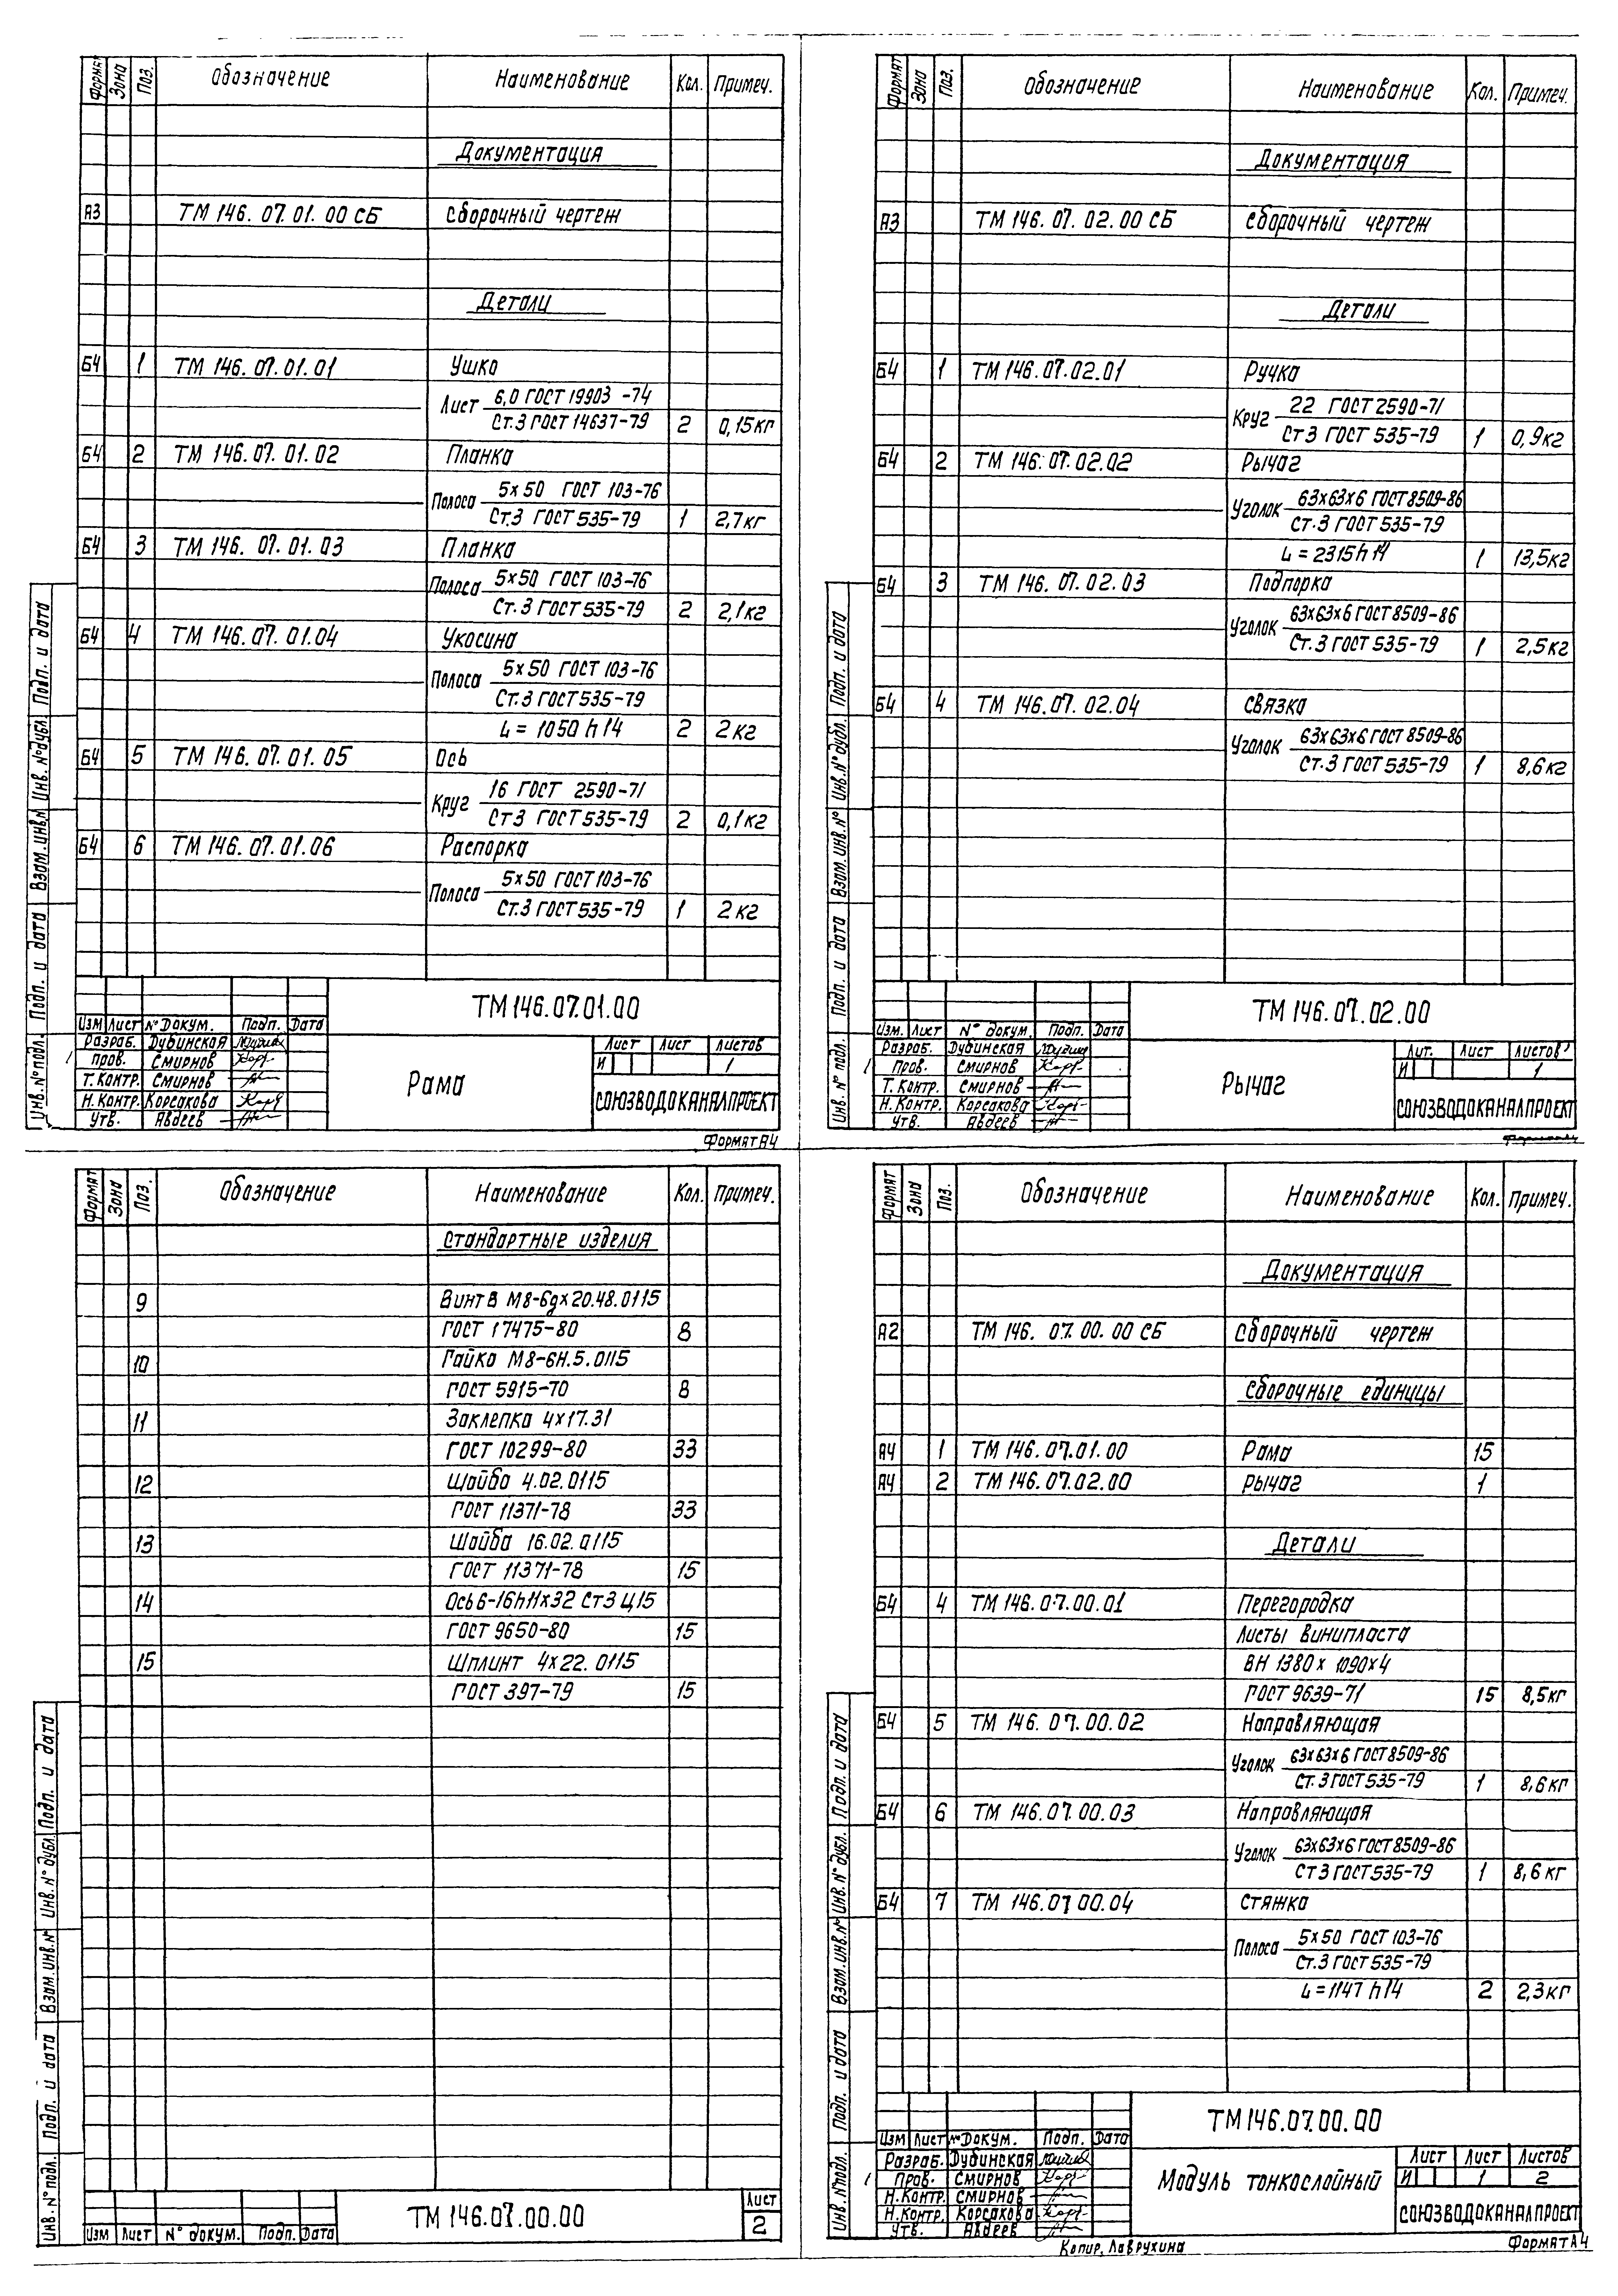 Формат Зона Поз. Обозначение Наименование Кол. Примеч.
Документация
А3 ТМ 146. 07. 01. 00 СБ Сборочный чертеж
Детали
Б4 1 ТМ 146. 07. 01. 01 Ушко
Лист 6,0 ГОСТ 19903-74
Ст.3 ГОСТ 14637-79 2 0,15кг
Б4 2 ТМ 146. 07. 01. 02 Планка
Полоса 5х50 ГОСТ 103-76
Ст.3 ГОСТ 535-79 1 2,7кг
Б4 3 ТМ 146. 07. 01. 03 Планка
Полоса 5х50 ГОСТ 103-76
Ст.3 ГОСТ 535-79 2 2,1кг
Б4 4 ТМ 146. 07. 01. 04 Укосина
Полоса 5х50 ГОСТ 103-76
Ст.3 ГОСТ 535-79
L = 1050 h14 2 2кг
Б4 5 ТМ 146. 07. 01. 05 Ось
Круг 16 ГОСТ 2590-71
Ст3 ГОСТ 535-79 2 0,1кг
Б4 6 ТМ 146. 07. 01. 06 Распорка
Полоса 5х50 ГОСТ 103-76
Ст.3 ГОСТ 535-79 1 2кг
Инв.№подл. Подп. и дата Взам.инв.№ Инв.№дубл. Подп. и дата
ТМ 146.07.01.00
Изм Лист №Докум. Подп. Дата
Разраб. Дубинская
Пров. Смирнов
Т.Контр. Смирнов
Н.Контр. Корсакова
Утв. Авдеев
Рама
Лист Лист Листов
И 1
СОЮЗВОДОКАНАЛПРОЕКТ
Формат А4
Формат Зона Поз. Обозначение Наименование Кол. Примеч.
Документация
А3 ТМ 146. 07. 02. 00 СБ Сборочный чертеж
Детали
Б4 1 ТМ 146. 07. 02. 01 Ручка
Круг 22 ГОСТ 2590-71
Ст3 ГОСТ 535-79 1 0,9кг
Б4 2 ТМ 146. 07. 02. 02 Рычаг
Уголок 63х63х6 ГОСТ 8509-86
Ст.3 ГОСТ 535-79
L = 2315 h14 1 13,5кг
Б4 3 ТМ 146. 07. 02. 03 Подпорка
Уголок 63х63х6 ГОСТ 8509-86
Ст.3 ГОСТ 535-79 1 2,5кг
Б4 4 ТМ 146. 07. 02. 04 Связка
Уголок 63х63х6 ГОСТ 8509-86
Ст.3 ГОСТ 535-79 1 8,6кг
Инв.№ подл. Подп. и дата Взам.инв.№ Инв.№ дубл. Подп. и дата
ТМ 146. 07. 02. 00
Изм. Лист № докум. Подп. Дата
Разраб. Дубинская
Пров. Смирнов
Т.Контр. Смирнов
Н.Контр. Корсакова
Утв. Авдеев
Рычаг
Лит. Лист Листов
И 1
СОЮЗВОДОКАНАЛПРОЕКТ
Формат Зона Поз. Обозначение Наименование Кол. Примеч.
Стандартные изделия
9 Винт В М8-6gх20.48.0115
ГОСТ 17475-80 8
10 Гайка М8-6Н.5.0115
ГОСТ 5915-70 8
11 Заклепка 4х17.31
ГОСТ 10299-80 33
12 Шайба 4.02.0115
ГОСТ 11371-78 33
13 Шайба 16.02.0115
ГОСТ 11371-78 15
14 Ось 6-16h11х32 Ст3 Ц15
ГОСТ 9650-80 15
15 Шплинт 4х22.0115
ГОСТ 397-79 15
Инв.№подл. Подп. и дата Взам.инв.№ Инв.№дубл. Подп. и дата
Изм Лист № докум. Подп. Дата
ТМ 146.07.00.00
Лист
2
Формат Зона Поз. Обозначение Наименование Кол. Примеч.
Документация
А2 ТМ 146. 07. 00. 00 СБ Сборочный чертеж
Сборочные единицы
А4 1 ТМ 146. 07. 01. 00 Рама 15
А4 2 ТМ 146. 07. 02. 00 Рычаг 1
Детали
Б4 4 ТМ 146. 07. 00. 01 Перегородка
Листы винипласта
ВН 1380х1090х4
ГОСТ 9639-71 15 8,5кг
Б4 5 ТМ 146. 07. 00. 02 Направляющая
Уголок 63х63х6 ГОСТ 8509-86
Ст.3 ГОСТ 535-79 1 8,6кг
Б4 6 ТМ 146. 07. 00. 03 Направляющая
Уголок 63х63х6 ГОСТ 8509-86
Ст3 ГОСТ 535-79 1 8,6кг
Б4 7 ТМ 146. 07 00. 04 Стяжка
Полоса 5х50 ГОСТ 103-76
Ст.3 ГОСТ 535-79
L = 1147 h14 2 2,3кг
Инв.№подл. Подп. и дата Взам.инв.№ Инв.№ дубл. Подп. и дата
ТМ 146.07.00.00
Изм Лист №Докум. Подп. Дата
Разраб. Дубинская
Пров. Смирнов
Н.Контр. Смирнов
Н.Контр. Корсакова
Утв. Авдеев
Модуль тонкослойный
Лист Лист Листов
И 1 2
СОЮЗВОДОКАНАЛПРОЕКТ
Копир. Лаврухина
Формат А4